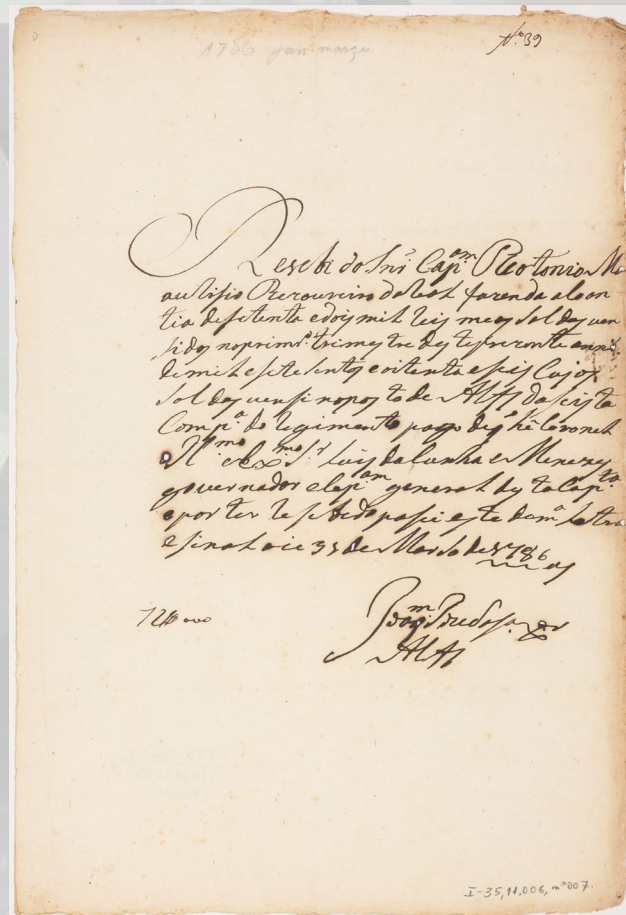 1786 jan-março
Nº 39
Resebi do Snr̃ Capᵃᵐ Theotonio Ma
auricio Thezoureiro da Real fazenda a Coan
tia de setenta e dois mil Reis meos soldos ven
sidos no primrº trimestre deste prezente anno
de mil e sete sentos e oitenta e seis Cujos
soldos vensi no posto de Alfˢ da seista
Compª do Regimento pago de q̃ hé Coronel
o Illᵐᵒ e Exᵐᵒ Sʳ Luis da Cunha e Menezes
governador e Capᵃᵐ general desta Capⁿᵗᵃ
e por ter Resebido pasei este da mª Letra
e sinal oie 31 de Marso de 1786 as
72$000
Joaqᵐ
Alfˢ
I-35,11,006, nº 007.